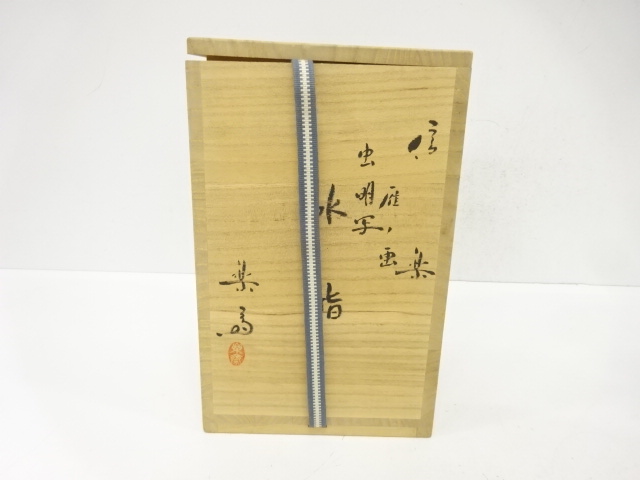 信楽
雁ノ画
虫明写
水指
楽斎